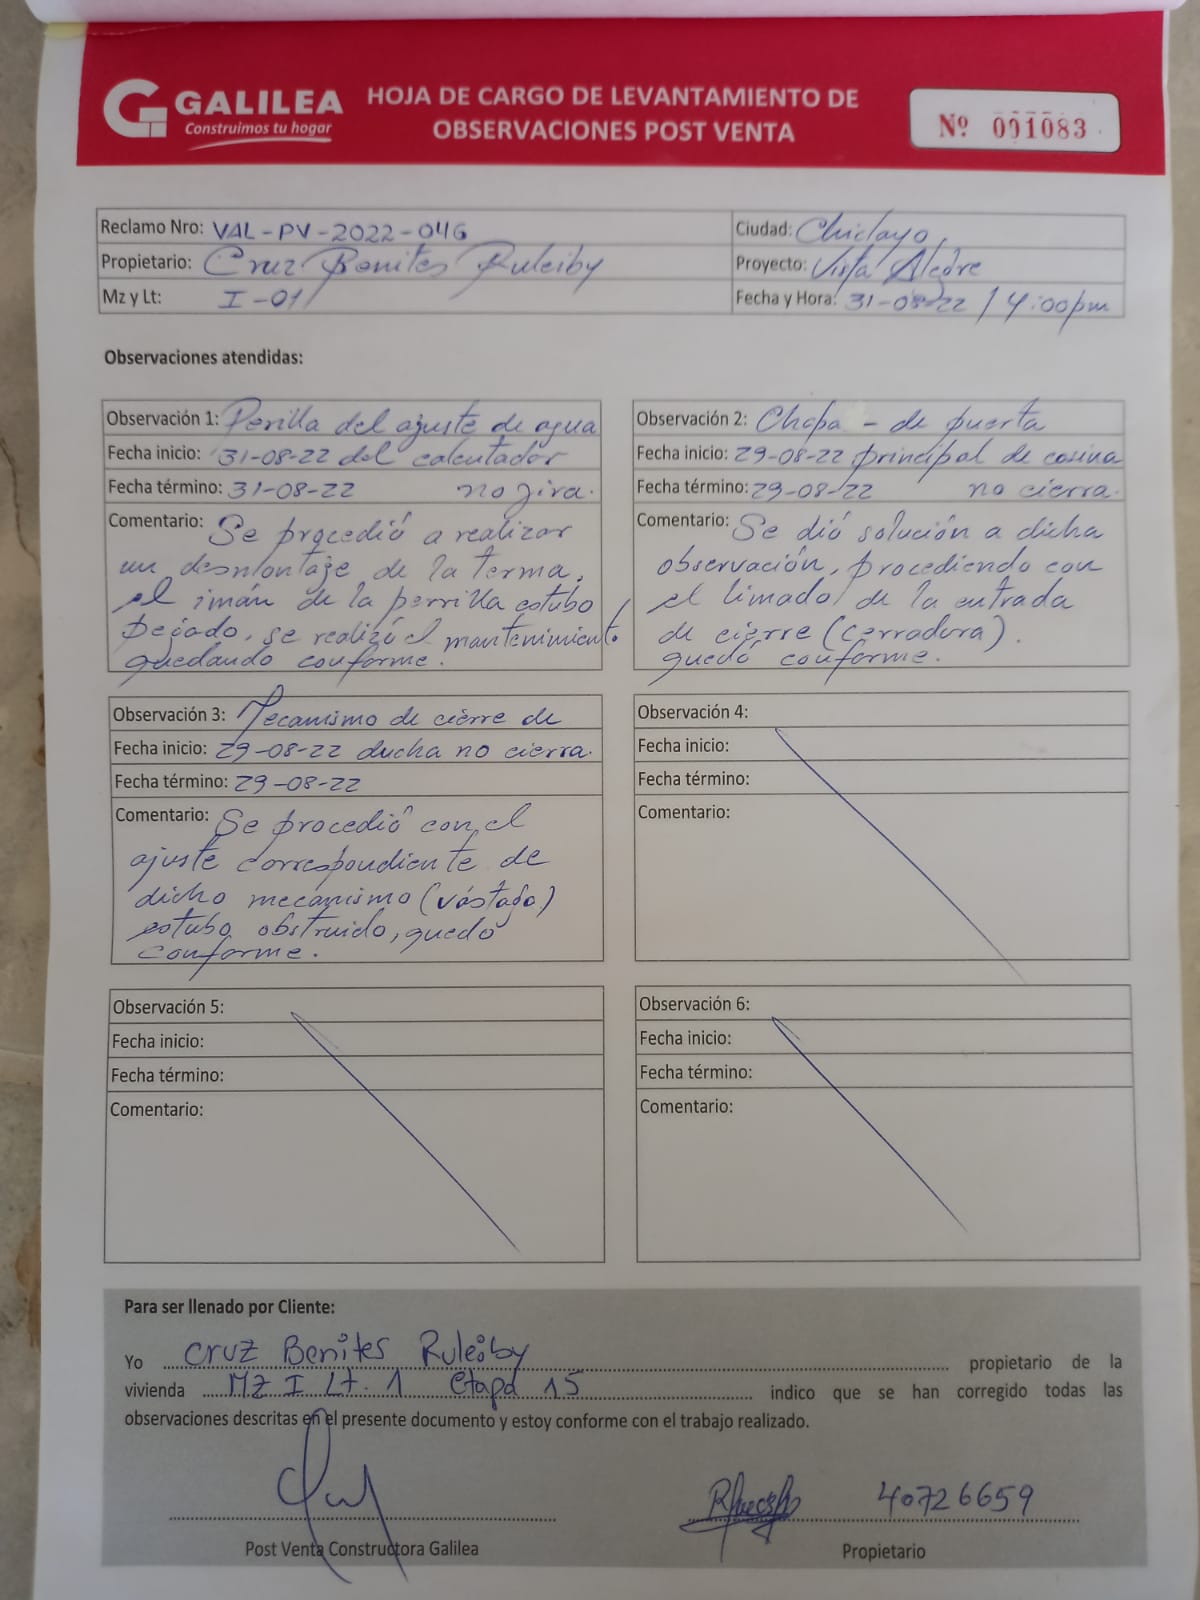 GALILEA
Construimos tu hogar
HOJA DE CARGO DE LEVANTAMIENTO DE
OBSERVACIONES POST VENTA
Nº 001083
Reclamo Nro: VAL-PV-2022-046
Ciudad: Chiclayo
Propietario: Cruz Benites Ruleiby
Proyecto: Vista Alegre
Mz y Lt: I-01
Fecha y Hora: 31-08-22 / 4:00pm
Observaciones atendidas:
Observación 1: Perilla del ajuste de agua
Fecha inicio: 31-08-22 del calentador
Fecha término: 31-08-22 no jira.
Comentario: Se procedió a realizar
un desmontaje de la terma,
el imán de la perrilla estubo
pegado, se realizó el mantenimiento
quedando conforme.
Observación 2: Chapa - de puerta
Fecha inicio: 29-08-22 principal de cosina
Fecha término: 29-08-22 no cierra.
Comentario: Se dió solución a dicha
observación, procediendo con
el limado de la entrada
de cierre (cerradura).
quedó conforme.
Observación 3: Mecanismo de cierre de
Fecha inicio: 29-08-22 ducha no cierra.
Fecha término: 29-08-22
Comentario: Se procedió con el
ajuste correspondiente de
dicho mecanismo (vástago)
estubo obstruido, quedó
conforme.
Observación 4:
Fecha inicio:
Fecha término:
Comentario:
Observación 5:
Fecha inicio:
Fecha término:
Comentario:
Observación 6:
Fecha inicio:
Fecha término:
Comentario:
Para ser llenado por Cliente:
Yo Cruz Benites Ruleiby propietario de la
vivienda Mz I Lt. 1 Etapa 15 indico que se han corregido todas las
observaciones descritas en el presente documento y estoy conforme con el trabajo realizado.
40726659
Post Venta Constructora Galilea
Propietario